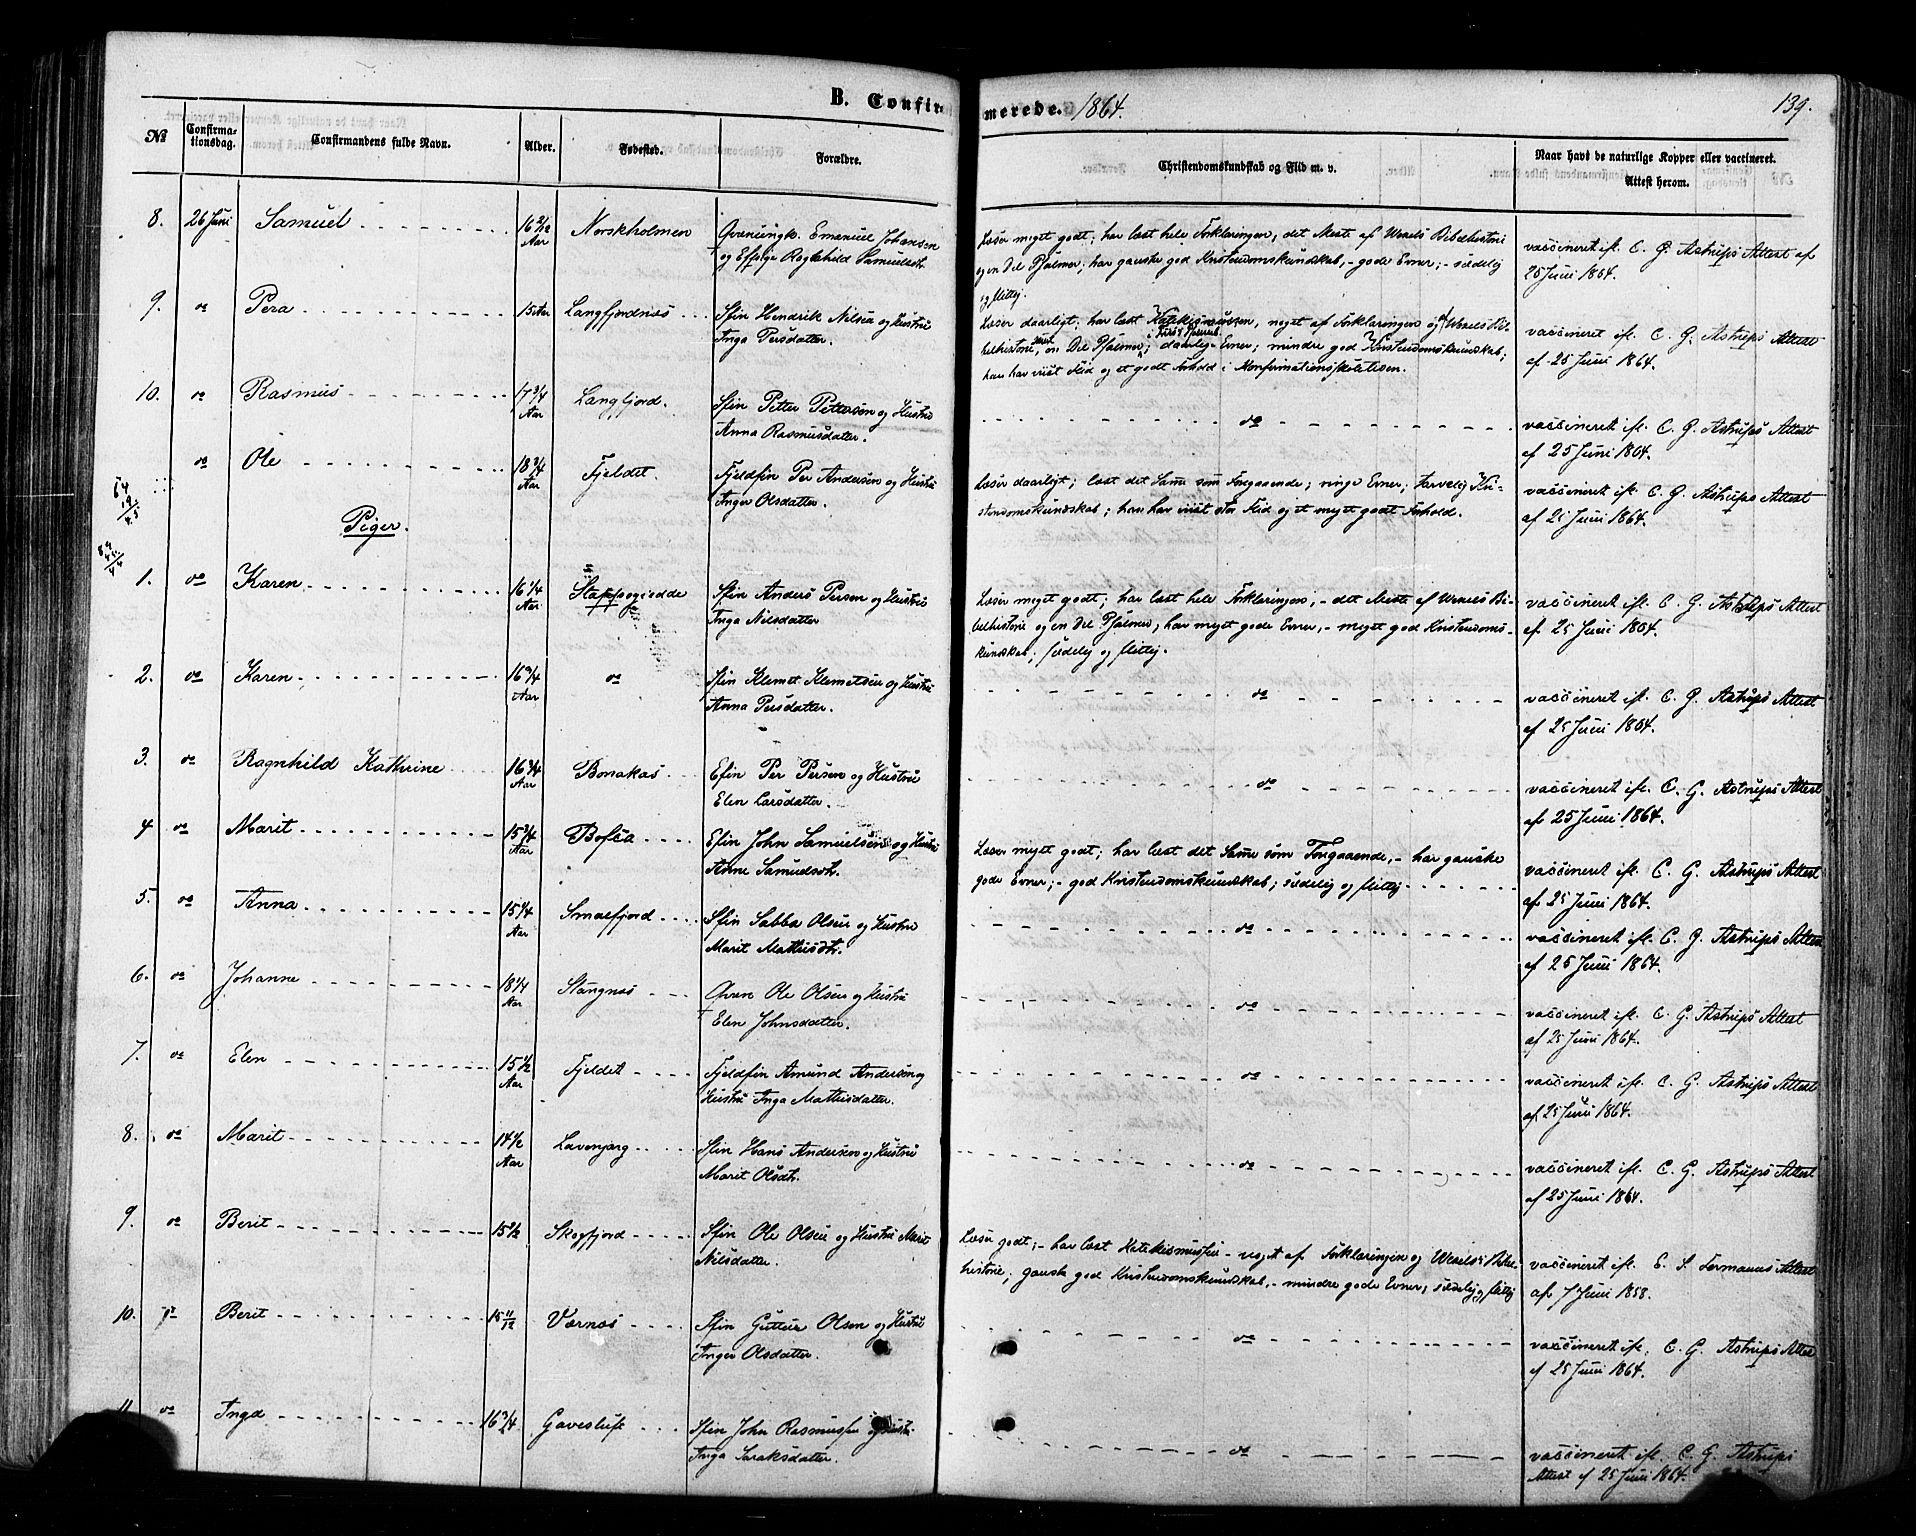 B. Confir-
merede. 1864.
139.
No
Confirma-
tionsdag.
Confirmandens fulde Navn.
Alder.
Fødested.
Forældre.
Christendomskundskab og Flid m. v.
Naar havt de naturlige Kopper eller vaccineret.
Attest herom.
8. 26 Juni Samuel 16 2/12 Norskholmen
Aar
Emanuel Johansen
og Ragnhild Samuelsdt.
Læser meget godt; har læst hele Forklaringen, det Meste af Wexels Bibelhistorie
og en Del Psalmer; har ganske god Kristendomskundskab, - gode Evner; - sædelig
og flittig.
vaccineret ifl. C. G. Astrups Attest af
25 Juni 1864.
9. do Pera 15 Aar Langfjordnæs
Sfin Hendrik Nilsen og Hustru
Inga Persdatter.
Læser daarligt; har læst Katekismussen, noget af Forklaringen og Wexels Bi-
belhistorie, en Del Psalmer; daarlige Evner; mindre god Kristendomskundskab;
han har viist Flid og et godt Forhold i Konfirmationsskoletiden.
vaccineret ifl. C. G. Astrups Attest
af 25 Juni 1864.
10. do Rasmus 17 3/4 Langfjord.
Aar
Sfin Petter Pettersen og Hustru
Anna Rasmusdatter.
do
vaccineret ifl. C. G. Astrups Attest
af 25 Juni 1864.
do Ole 18 3/4 Fjeldet.
Aar
Fjeldfin Per Andersen og Hustru
Inger Olsdatter.
Læser daarligt; læst det Samme som Foregaaende; ringe Evner; Farvelig Kri-
stendomskundskab; han har viist stor Flid og et meget godt Forhold.
vaccineret ifl. C. G. Astrups Attest
af 25 Juni 1864.
Piger.
1. do Karen 16 1/4 Stappogiedde
Aar
Sfin Anders Persen og Hustru
Inga Nilsdatter
Læser meget godt; har læst hele Forklaringen, - det Meste af Wexels Bi-
belhistorie og en Del Psalmer; har meget gode Evner, - meget god Kristendoms-
kundskab; sædelig og flittig.
vaccineret ifl. C. G. Astrups Attest
af 25 Juni 1864.
2. do Karen 16 3/4 do
Aar
Sfin Klemet Klemetsen og Hustru
Anna Persdatter.
do
vaccineret ifl. C. G. Astrups Attest
af 25 Juni 1864.
3. do Ragnhild Kathrine 16 3/4 Bonakas
Aar
Efin Per Persen og Hustru
Elen Larsdatter.
do
vaccineret ifl. C. G. Astrups Attest
af 25 Juni 1864.
4 do Marit 15 3/4
Aar
Efin John Samuelsen og Hustru
Anne Samuelsdt.
Læser meget godt; har læst det Samme som Foregaaende, - har ganske
gode Evner; - god Kristendomskundskab; sædelig og flittig
vaccineret ifl. C. G. Astrups Attest
af 25 Juni 1864.
5. do Anna 15 1/4 Smalfjord
Aar
Sfin Sabba Olsen og Hustru
Marit Mathisdt.
do
vaccineret ifl. C. G. Astrups Attest
af 25 Juni 1864.
6. do Johanne 18 1/4 Stangnæs
Aar
Qvæn Ole Olsen og Hustru
Elen Johnsdatter.
do
vaccineret ifl. C. G. Astrups Attest
af 25 Juni 1864.
7. do Elen 15 1/2 Fjeldet
Aar
Fjeldfin Amund Andersen og
Hustru Inga Mathisdatter.
do
vaccineret ifl. C. G. Astrups Attest
af 25 Juni 1864.
8. do Marit 14 1/2 Lavonjarg
Aar
Sfin Hans Andersen og Hustru
Marit Olsdt.
do
vaccineret ifl. C. G. Astrups Attest
af 25 Juni 1864.
9. do Berit Skogfjord
Sfin Ole Olsen og Hustru Marit
Nilsdatter.
Læser godt; - har læst Katekismussen - noget af Forklaringen og Wexels Bibel-
historie; ganske god Kristendomskundskab, - mindre gode Evner; sædelig og flittig
vaccineret ifl. Attest
af 7 Juni 1858.
10. do Berit 15 11/12 Værnæs
Sfin Guttur Olsen og Hustru
Inger Olsdatter.
do
vaccineret ifl. C. G. Astrups Attest
af 25 Juni 1864.
11. do Inga 16 3/4 Gavesluft
Sfin John Rasmussen og Hustru
Inga Saraksdatter.
do
vaccineret ifl. C. G. Astrups
Attest af 25 Juni 1864.